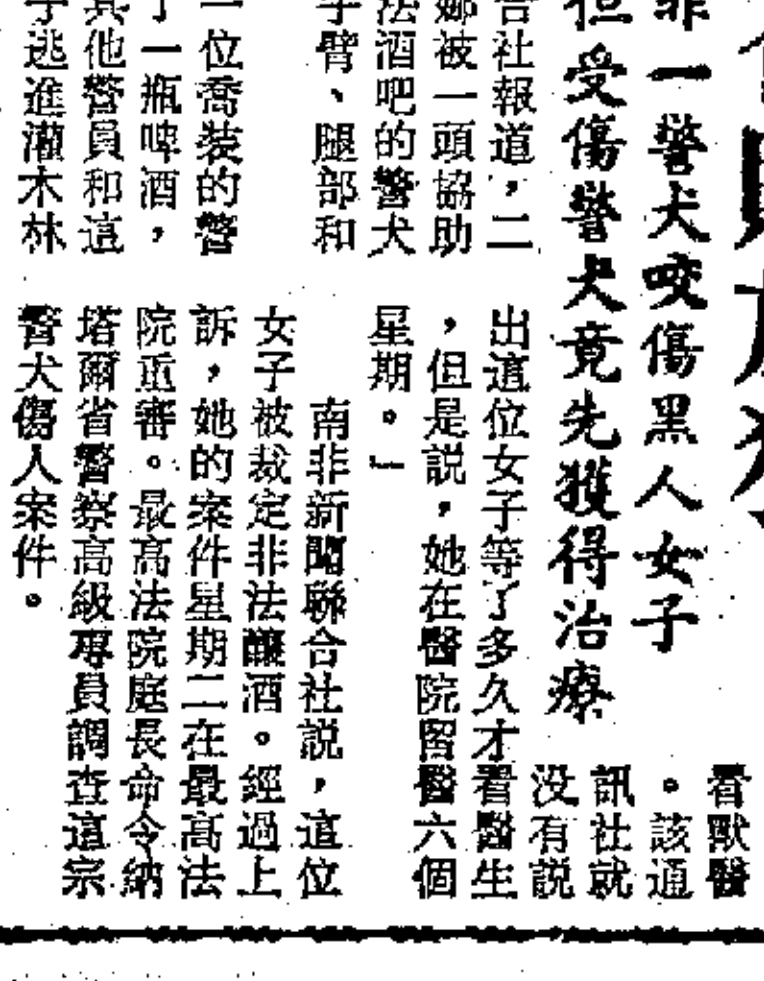 非一警犬咬傷黑人女子
但受傷警犬竟先獲得治療
合社報道，二
娜被一頭協助
法酒吧的警犬
手臂、腿部和
一位喬裝的警
了一瓶啤酒，
其他警員和這
子逃進灌木林
看獸醫
。該通
訊社就
没有説
出這位女子等了多久才看醫生
，但是説，她在醫院留醫六個
星期。」
南非新聞聯合社説，這位
女子被裁定非法釀酒。經過上
訴，她的案件星期二在最高法
院重審。最高法院庭長命令納
塔爾省警察高級專員調查這宗
警犬傷人案件。